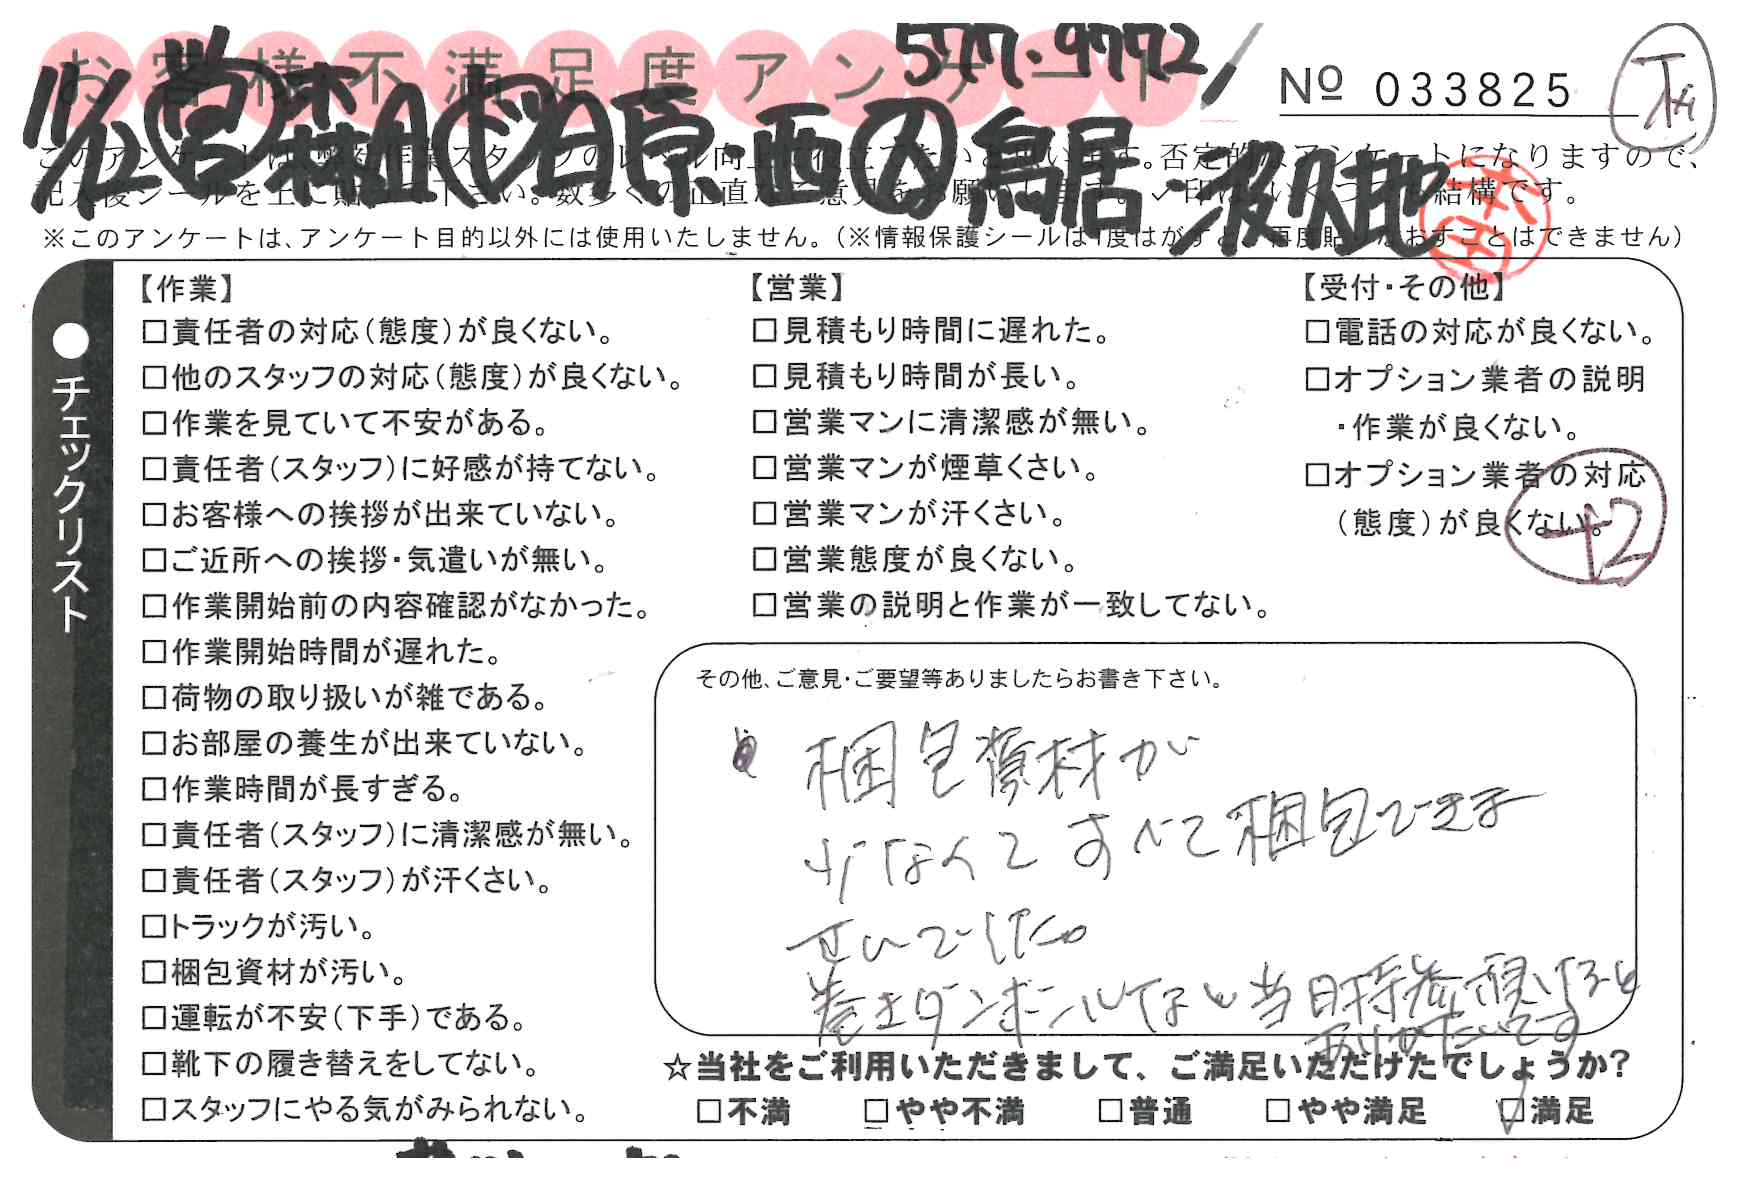 お客様不満足度アンケート
577.9772
№ 033825
11/12 営 森山 ド 日原・西 入 鳥居 汲久地
このアンケートは、弊社作業スタッフのレベル向上に役立てたいと思います。否定的なアンケートになりますので、
記入後シールを上に貼って下さい。数多くの正直なご意見をお願いします。✓印は、いくつでも結構です。
※このアンケートは、アンケート目的以外には使用いたしません。（※情報保護シールは1度はがすと、再度貼りなおすことはできません）
●チェックリスト
【作業】
□責任者の対応（態度）が良くない。
□他のスタッフの対応（態度）が良くない。
□作業を見ていて不安がある。
□責任者（スタッフ）に好感が持てない。
□お客様への挨拶が出来ていない。
□ご近所への挨拶・気遣いが無い。
□作業開始前の内容確認がなかった。
□作業開始時間が遅れた。
□荷物の取り扱いが雑である。
□お部屋の養生が出来ていない。
□作業時間が長すぎる。
□責任者（スタッフ）に清潔感が無い。
□責任者（スタッフ）が汗くさい。
□トラックが汚い。
□梱包資材が汚い。
□運転が不安（下手）である。
□靴下の履き替えをしてない。
□スタッフにやる気がみられない。
【営業】
□見積もり時間に遅れた。
□見積もり時間が長い。
□営業マンに清潔感が無い。
□営業マンが煙草くさい。
□営業マンが汗くさい。
□営業態度が良くない。
□営業の説明と作業が一致してない。
【受付・その他】
□電話の対応が良くない。
□オプション業者の説明
・作業が良くない。
□オプション業者の対応
（態度）が良くない。
+2
その他、ご意見・ご要望等ありましたらお書き下さい。
梱包資材が
少なくて すべて梱包できま
せんでした。
巻きダンボールなど当日持参頂けると
ありがたいです
☆当社をご利用いただきまして、ご満足いただけたでしょうか?
□不満 □やや不満 □普通 □やや満足 ☑満足